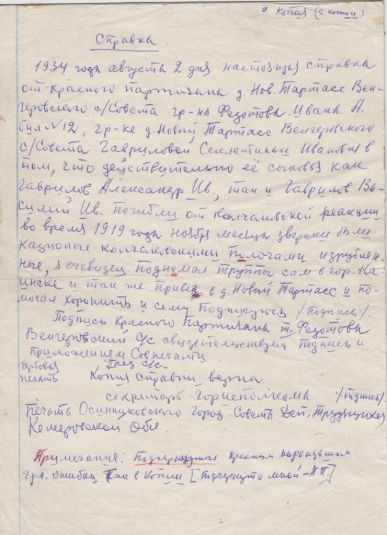 Копия (с копии)
Справка
1934 года августа 2 дня настоящая справка
от Красного партизана д. Нов. Тартасс Вен-
геровского с/Совета гр-на Федотова Ивана А.
бил. №12, гр-ке д. Новый Тартасс Венгеровского
с/Совета Гавриловой Селестинии Ивановне в
том, что действительно её сыновья как
Гаврилов Александр Ив, так и Гаврилов Ва-
силий Ив. погибли от колчаковской реакции
во время 1919 года ноября месяца зверски были
колчаковскими изрублен-
ные, я очевидец поднемал труппы сам в гор. Ка-
инске и так же привез в д. Новый Тартасс и по-
могал хоронить и сему подписуюсь /подпись/.
Подпись Красного Партизана т. Федотова
Венгеровский С/С свидетельствует подпись и
приложением Совпечати
гербовая Пред. с/с.
печать Копия справки верна
секретарь горисполкома /подпись/
Печать Осинниковского Город. Совета Деп. Трудящихся
Кемеровской Обл
Примечание: Подчеркнутые красным карандашом
гр. ошибки как в копии [подчеркнуто мной -